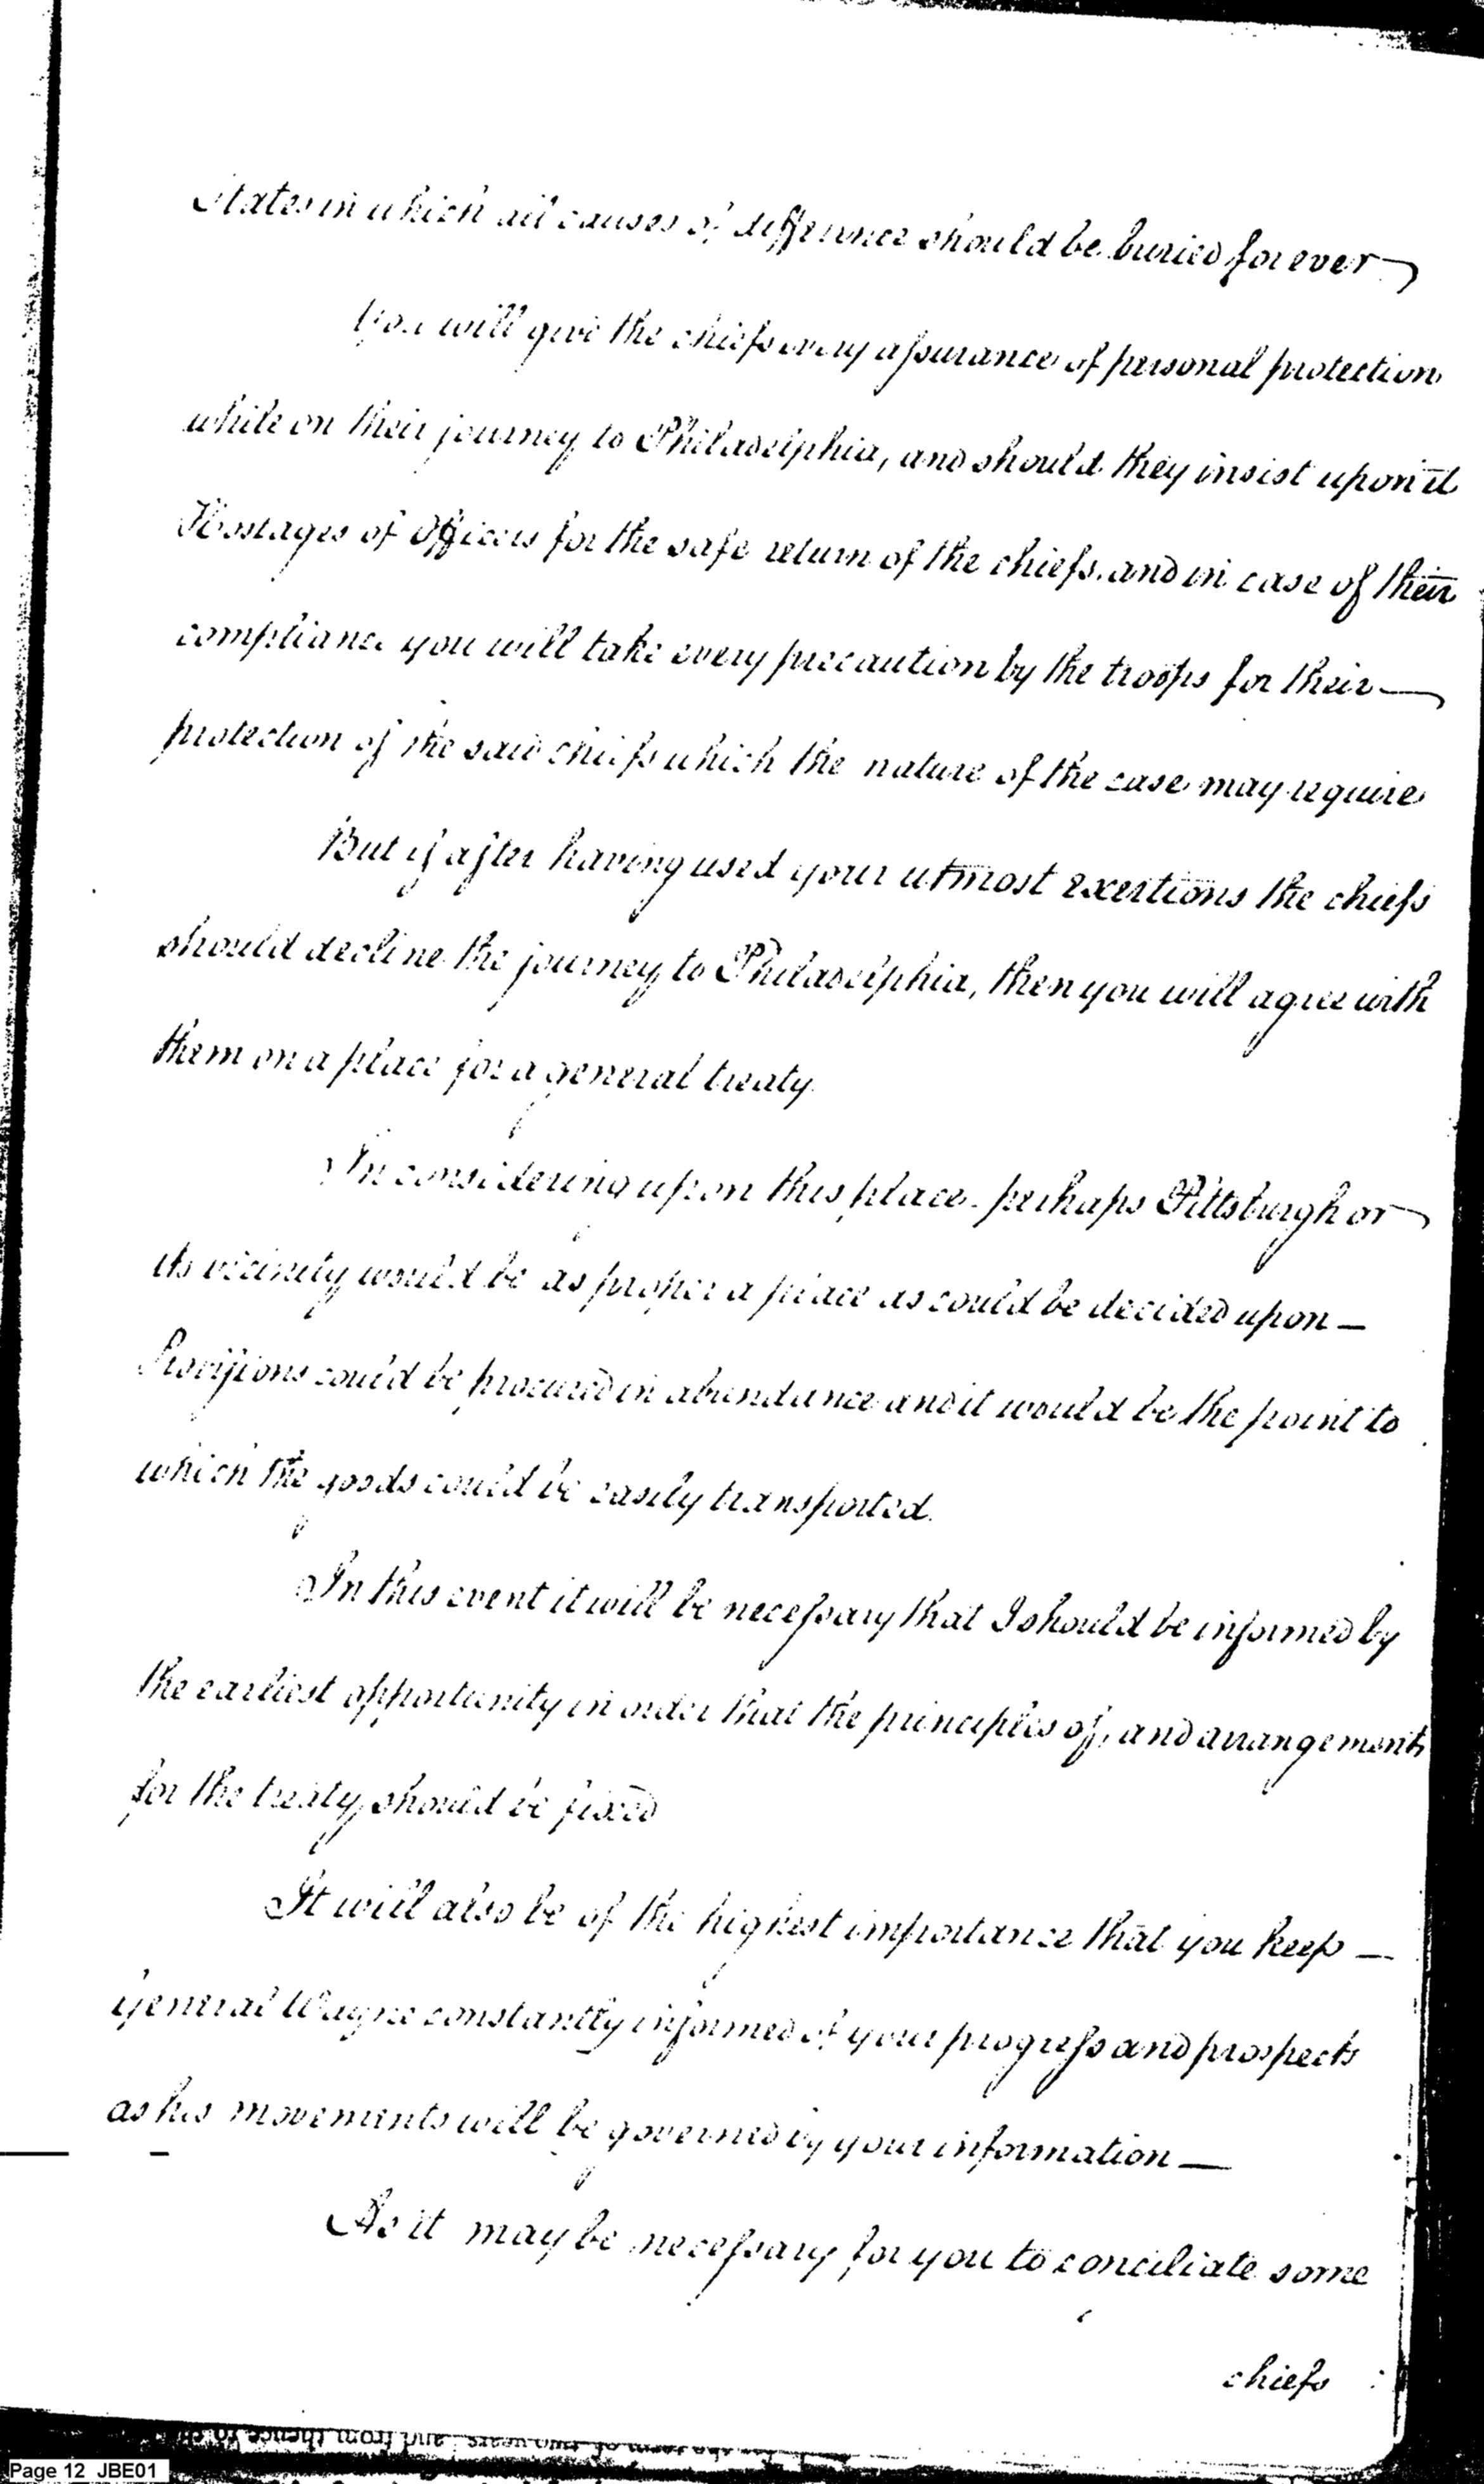 States in which all causes of difference should be buried for ever
You will give the chiefs every assurance of personal protection
while on their journey to Philadelphia, and should they insist upon it
Hostages of Officers for the safe return of the chiefs. and in case of their
compliance you will take every precaution by the troops for their
protection of the said chiefs which the nature of the case may require
But if after having used your utmost exertions the chiefs
should decline the journey to Philadelphia, then you will agree with
them on a place for a general treaty.
In considering upon this place. perhaps Pittsburgh or
its vicinity would be as proper a place as could be decided upon —
Provisions could be procured in abundance and it would be the point to
which the goods could be easily transported.
In this event it will be necessary that I should be informed by
the earliest opportunity in order that the principles of, and arrangements
for the treaty should be fixed
It will also be of the highest importance that you keep —
General Wayne constantly informed of your progress and prospects
as his movements will be governed by your information —
As it may be necessary for you to conciliate some
chiefs
Page 12 JBE01